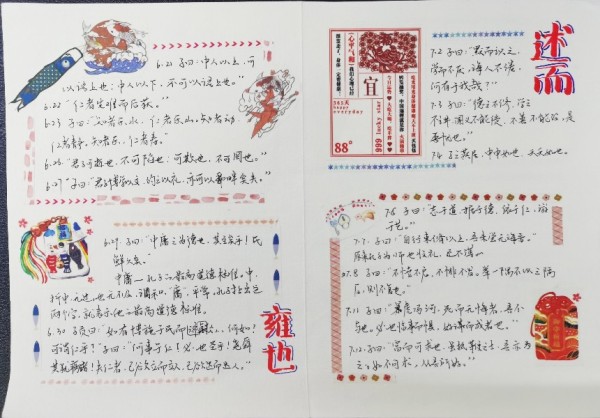 6.21 子曰:"中人以上,可
以语上也;中人以下,不可以语上也。"
6.22 "仁者先难而后获。"
6.23 子曰:"知者乐水,仁者乐山,知者动,
仁者静,知者乐,仁者寿。"
6.26 "君子可逝也,不可陷也;可欺也,不可罔也。"
6.27 子曰:"君子博学以文,约之以礼,亦可以弗畔矣夫。"
6.29 子曰:"中庸之为德也,其至矣乎!民
鲜久矣。"
中庸——孔子的最高道德标准。中,
折中,无过,也无不及,调和。"庸",平常。孔子拈出这
两个字,就表示他的最高道德标准。
6.30 子贡曰:"如有博施于民而能济众,何如?
可谓仁乎?"子曰:"何事于仁!必也圣乎!尧舜
其犹病诸!夫仁者,己欲立而立人,己欲达而达人。
雍也
心平气和
宜
365天
88
666
述而
7.2 子曰:"默而识之,
学而不厌,诲人不倦,
何有于我哉?"
7.3 子曰:"德之不修,学之
不讲,闻义不能徙,不善不能改,是
吾忧也。"
7.4 子之燕居,申申如也,夭夭如也。
7.6 子曰:"志于道,据于德,依于仁,游
于艺。"
7.7 子曰:"自行束脩以上,吾未尝无诲焉。"
7.8 子曰:"不愤不启,不悱不发。举一隅不以三隅
反,则不复也。"
7.11 子曰:"暴虎冯河,死而无悔者,吾不
与也。必也临事而惧,好谋而成者也。"
7.12 子曰:"富而可求也,虽执鞭之士,吾亦为
之。如不可求,从吾所好。"